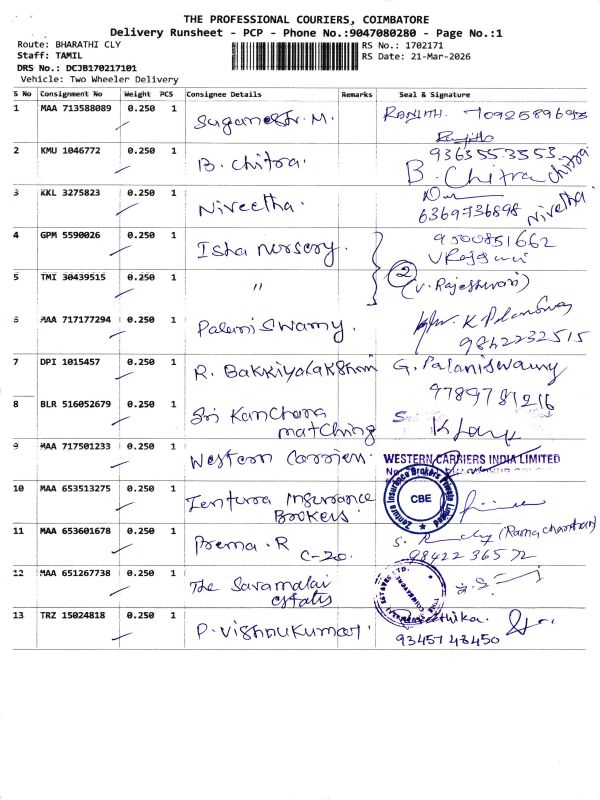 THE PROFESSIONAL COURIERS, COIMBATORE
Delivery Runsheet - PCP - Phone No.:9047080280 - Page No.:1
Route: BHARATHI CLY
RS No.: 1702171
Staff: TAMIL
RS Date: 21-Mar-2026
DRS No.: DCJB170217101
Vehicle: Two Wheeler Delivery
S No Consignment No Weight PCS Consignee Details Remarks Seal & Signature
1 MAA 713588089 0.250 1 M. RANJITH. 7092589693
2 KMU 1046772 0.250 1 B. Chitra. 9363553553
B. Chitra Chitra
3 KKL 3275823 0.250 1 Niveetha.
6369736898 Nivetha.
4 GPM 5590026 0.250 1 Isha Nursery. 9500851662
5 TMI 30439515 0.250 1 " 2 (V. Rajeshwari)
6 MAA 717177294 0.250 1 Palani Swamy. K Palaniswamy
9842232515
7 DPI 1015457 0.250 1 R. Bakkiyalakshmi G. Palaniswamy
9789781216
8 BLR 516052679 0.250 1 Sri Kanchana
matching
9 MAA 717501233 0.250 1 Western Carriers. WESTERN CARRIERS INDIA LIMITED
10 MAA 653513275 0.250 1 Zentura Insurance
Brokers.
Zentura Insurance Brokers Private Limited
CBE
11 MAA 653601678 0.250 1 Prema. R
C-20.
(Ramachandran)
98422 36572
12 MAA 651267738 0.250 1 The Savamalai
estates
13 TRZ 15024818 0.250 1 P. Vishnukumar.
93457 48450